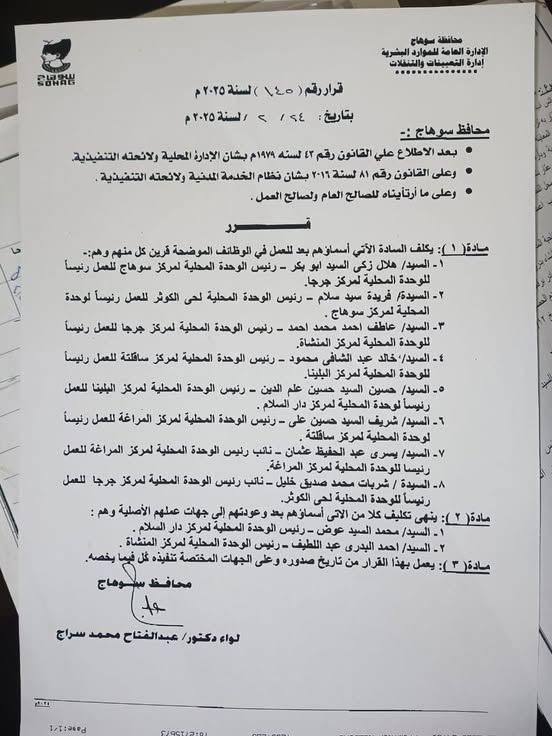 محافظة سوهاج
الإدارة العامة للموارد البشرية
إدارة التعيينات والتنقلات
سوهاج
SOHAG
قرار رقم ( ١٤٥ ) لسنة ٢٠٢٥ م
بتاريخ: ٢٤ / ٢ / لسنة ٢٠٢٥ م
محافظ سوهاج :-
• بعد الاطلاع علي القانون رقم ٤٣ لسنه ١٩٧٩م بشان الإدارة المحلية ولائحته التنفيذية.
• وعلى القانون رقم ٨١ لسنة ٢٠١٦ بشان نظام الخدمة المدنية ولائحته التنفيذية .
• وعلى ما ارتأيناه للصالح العام ولصالح العمل .
قـــــــرر
مـادة( ١ ): يكلف السادة الآتي أسماؤهم بعد للعمل في الوظائف الموضحة قرين كل منهم وهم:-
١- السيد/ هلال زكى السيد ابو بكر – رئيس الوحدة المحلية لمركز سوهاج للعمل رئيساً
للوحدة المحلية لمركز جرجا.
٢- السيدة/ فريدة سيد سلام – رئيس الوحدة المحلية لحى الكوثر للعمل رئيساً لوحدة
المحلية لمركز سوهاج .
٣- السيد/ عاطف احمد محمد احمد – رئيس الوحدة المحلية لمركز جرجا للعمل رئيساً
للوحدة المحلية لمركز المنشاة.
٤- السيد/ خالد عبد الشافى محمود – رئيس الوحدة المحلية لمركز ساقلتة للعمل رئيساً
للوحدة المحلية لمركز البلينا.
٥- السيد/ حسين السيد حسين علم الدين – رئيس الوحدة المحلية لمركز البلينا للعمل
رئيساً لوحدة المحلية لمركز دار السلام .
٦- السيد/ شريف السيد حسين على – رئيس الوحدة المحلية لمركز المراغة للعمل رئيساً
لوحدة المحلية لمركز ساقلتة .
٧- السيد/ يسرى عبد الحفيظ عثمان – نائب رئيس الوحدة المحلية لمركز المراغة للعمل
رئيسا للوحدة المحلية لمركز المراغة.
٨- السيدة / شربات محمد صديق خليل – نائب رئيس الوحدة المحلية لمركز جرجا للعمل
رئيساً للوحدة المحلية لحى الكوثر.
مـادة( ٢ ): ينهى تكليف كلا من الآتى أسماؤهم بعد وعودتهم إلى جهات عملهم الأصلية وهم :
١- السيد/ محمد السيد عوض – رئيس الوحدة المحلية لمركز دار السلام .
٢- السيد/ احمد البدرى عبد اللطيف – رئيس الوحدة المحلية لمركز المنشاة .
مـادة( ٣ ): يعمل بهذا القرار من تاريخ صدوره وعلى الجهات المختصة تنفيذه كُل فيما يخصه.
محافـظ سـوهاج
لواء دكتور/ عبدالفتاح محمد سراج
Page:1/1